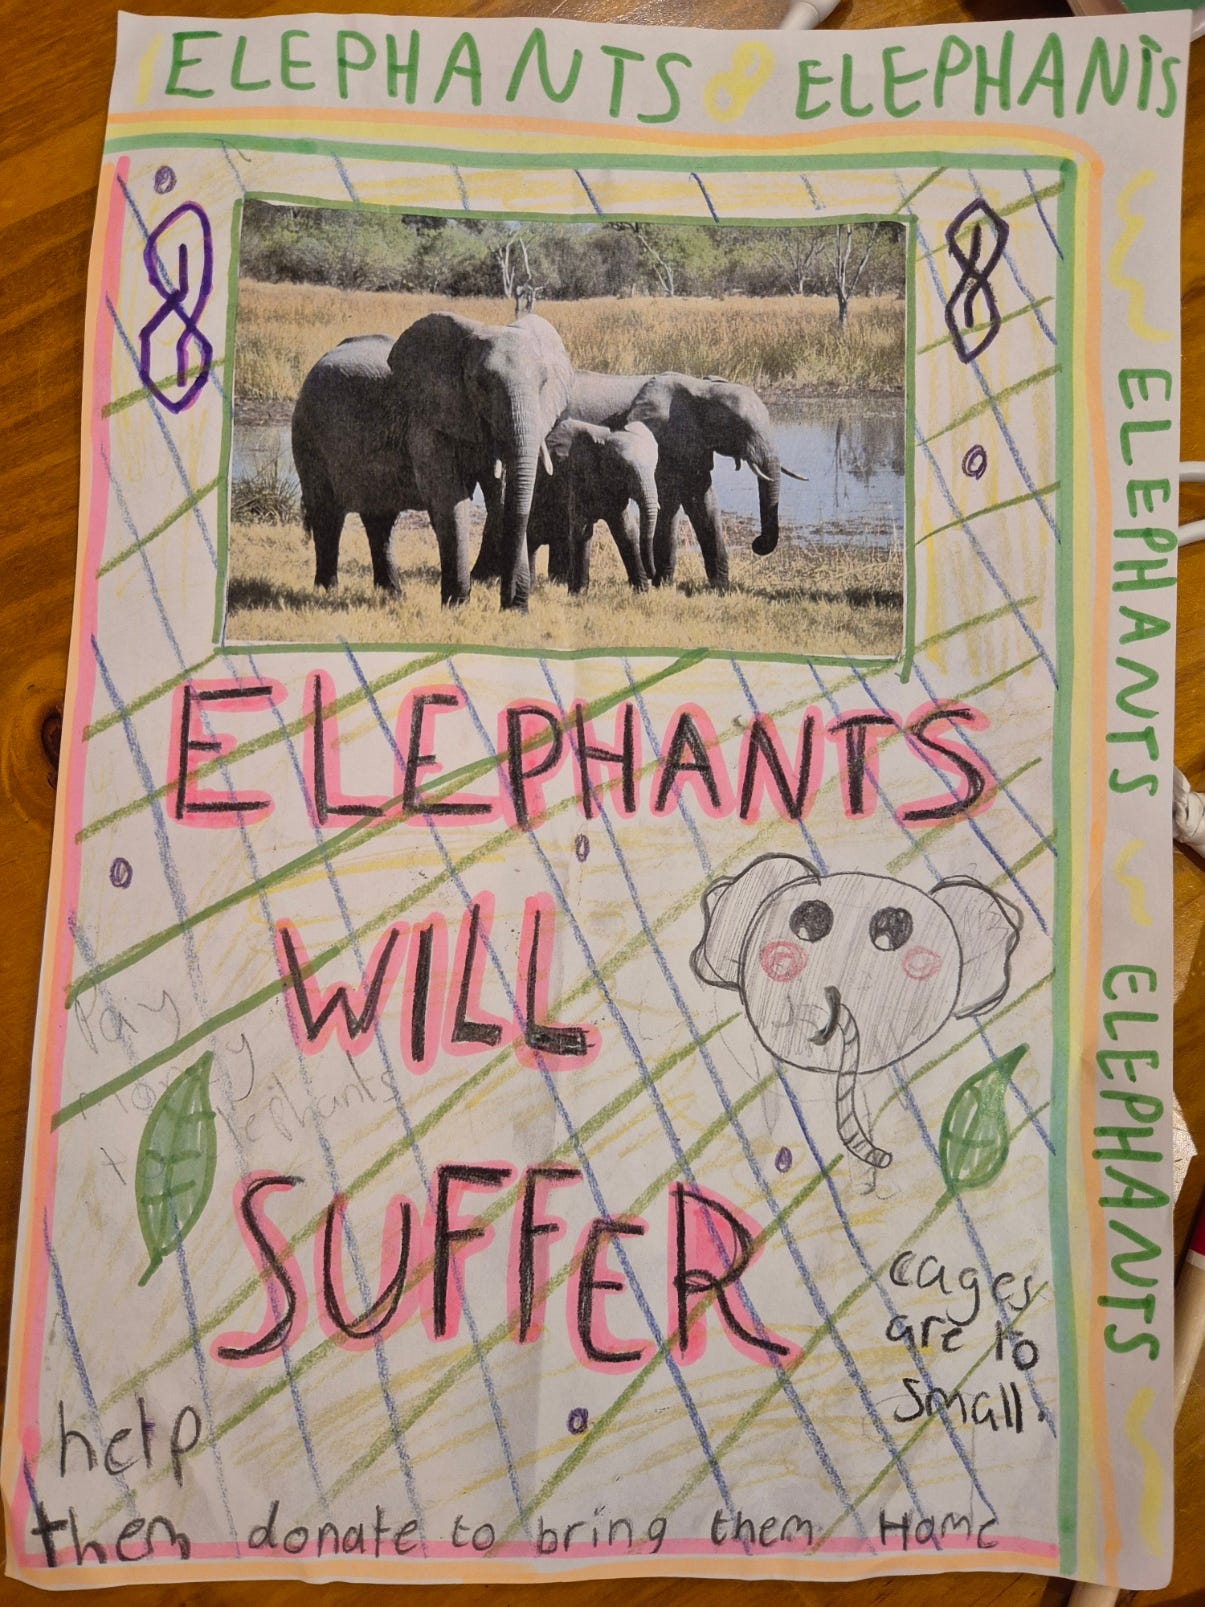 ELEPHANTS 8 ELEPHANTS
ELEPHANTS
ELEPHANTS
ELEPHANTS
WILL
SUFFER
Pay
Money
elephants
cages
are to
small.
help
them donate to bring them Home